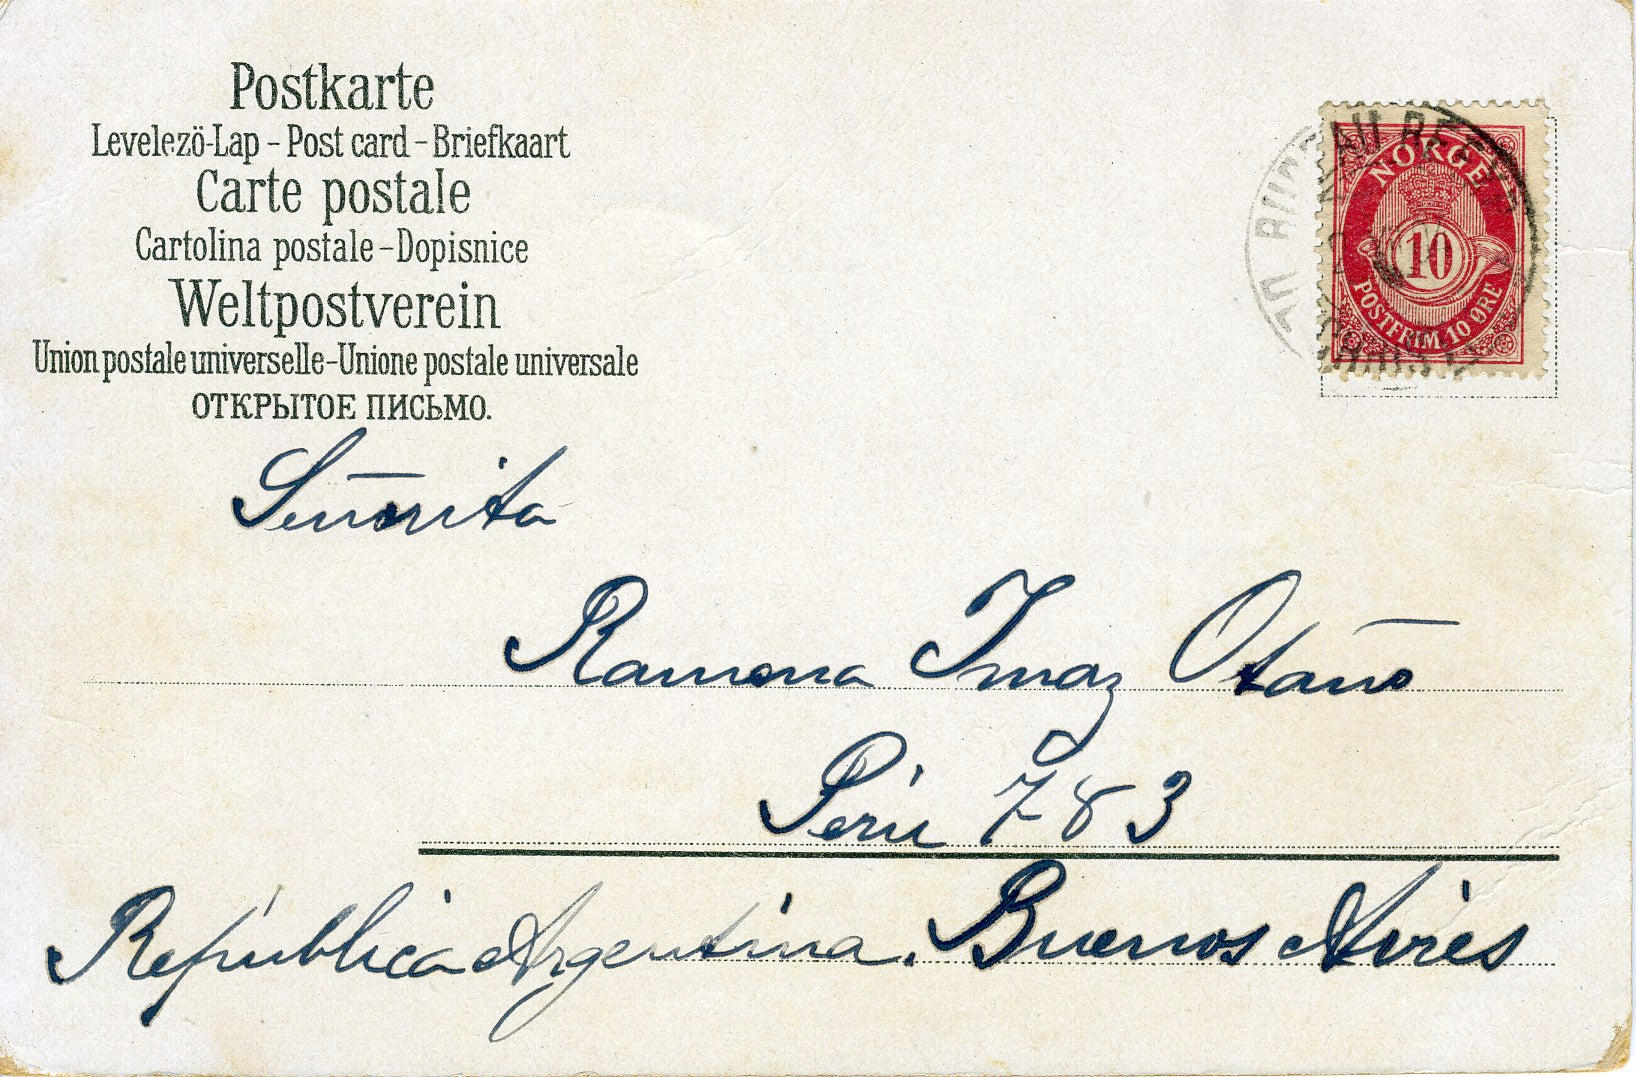 Postkarte
Levelezö-Lap – Post card – Briefkaart
Carte postale
Cartolina postale – Dopisnice
Weltpostverein
Union postale universelle – Unione postale universale
ОТКРЫТОЕ ПИСЬМО.
NORGE
10
POSTFRIM. 10 ØRE
Señorita
Ramona Imaz Otaño
Perú 783
República Argentina. Buenos Aires